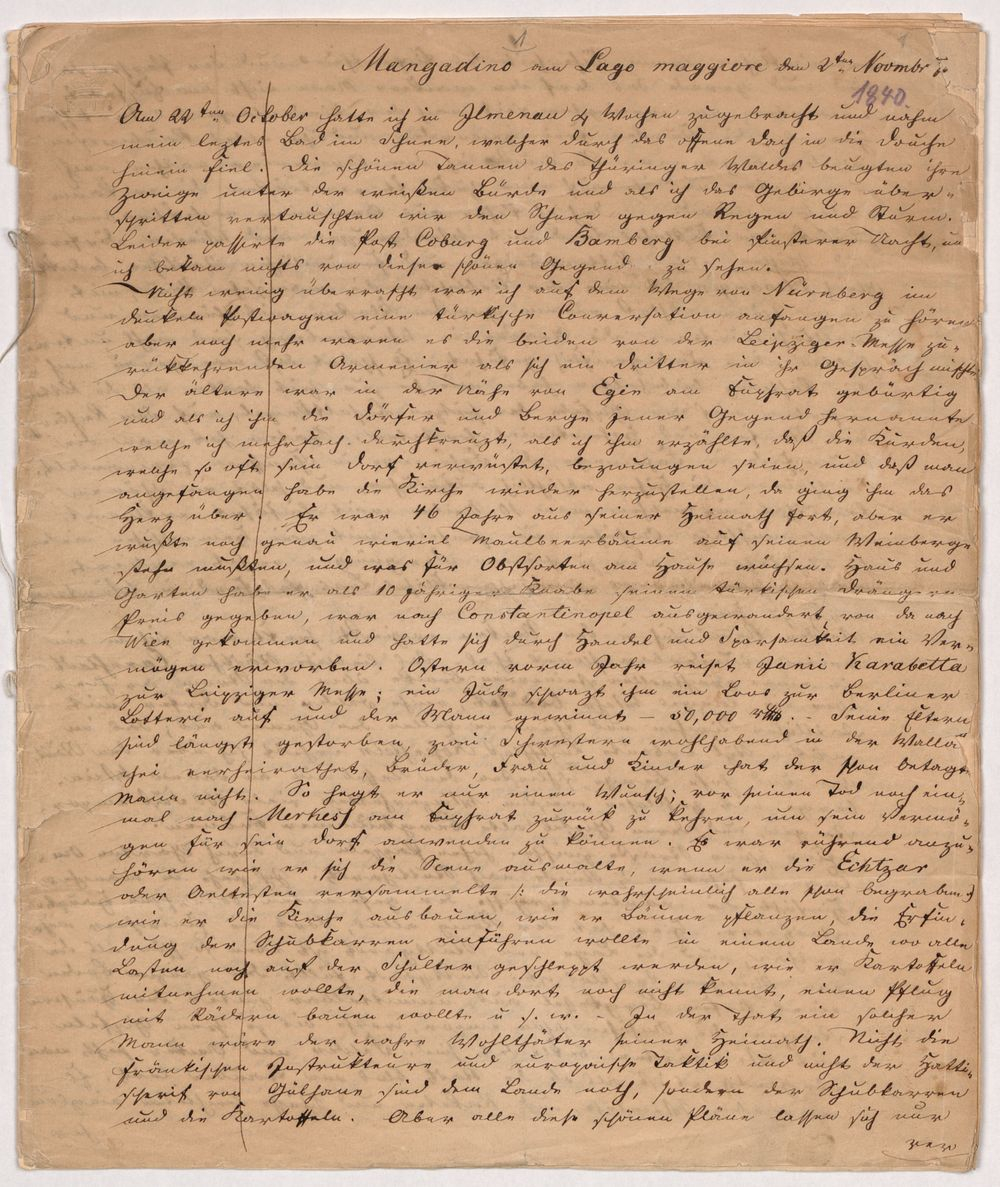 1
1
Mangadino am Lago maggiore den 2ten Novmbr
1840.
Am 22ten October hatte ich in Ilmenau 4 Wochen zugebracht und nahm
mein leztes Bad im Schnee, welcher durch das offene Dach in die Douche
hinein fiel. Die schönen Tannen des Thüringer Waldes beugten ihre
Zweige unter der weißen Bürde und als ich das Gebirge über-
schritten vertauschten wir den Schnee gegen Regen und Sturm.
Leider passirte die Post Coburg und Bamberg bei finsterer Nacht, un
ich bekam nichts von dieser schönen Gegend zu sehen.
Nicht wenig überrascht war ich auf dem Wege von Nürnberg im
dunkeln Postwagen eine türkische Conversation anfangen zu hören
aber noch mehr waren es die beiden von der Leipziger Messe zu-
rückkehrenden Armenier als sich ein Dritter in ihr Gespräch mischte
Der ältere war in der Nähe von Egin am Euphrat gebürtig
und als ich ihm die Dörfer und Berge jener Gegend hernannte
welche ich mehrfach durchkreuzt, als ich ihm erzählte, daß die Kurden,
welche so oft sein Dorf verwüstet, bezwungen seien, und daß man
angefangen habe die Kirche wieder herzustellen, da ging ihm das
Herz über. Er war 46 Jahre aus seiner Heimath fort, aber er
wußte noch genau wieviel Maulbeerbäume auf seinen Weinberge
stehn mußten, und was für Obstsorten am Hause wüchsen. Haus und
Garten habe er als 10 jähriger Knabe seinen türkischen Drängern
Preis gegeben, war nach Constantinopel ausgewandert von da nach
Wien gekommen und hatte sich durch Handel und Sparsamkeit ein Ver-
mögen erworben. Ostern vorm Jahr reiset Janii Karabetta
zur Leipziger Messe; ein Jude schwazt ihm ein Loos zur Berliner
Lotterie auf und der Mann gewinnt – 50,000 rth. – Seine Eltern
sind längst gestorben, zwei Schwestern wohlhabend in der Walla-
chei verheirathet, Brüder, Frau und Kinder hat der schon betagte
Mann nicht. So hegt er nur einen Wunsch; vor seinen Tod noch ein-
mal nach Merkesch am Euphrat zurück zu kehren, um sein Vermö-
gen für sein Dorf anwenden zu können. Es war rührend anzu-
hören wie er sich die Scene ausmalte, wenn er die Echtzar
oder Aeltesten versammelte /: die wahrscheinlich alle schon begraben :/
wie er die Kirche ausbauen, wie er Bäume pflanzen, die Erfin-
dung der Schubkarren einführen wollte in einem Lande wo alle
Lasten noch auf der Schulter geschleppt werden, wie er Kartoffeln
mitnehmen wollte, die man dort noch nicht kennt, einen Pflug
mit Rädern bauen wollte u. s. w. – In der That ein solcher
Mann wäre der wahre Wohlthäter seiner Heimath. Nicht die
Fränkischen Instrukteure und europäische Taktik und nicht der Hatti-
scherif von Gülhane sind dem Lande noth, sondern der Schubkarren
und die Kartoffeln. Aber alle diese schönen Pläne lassen sich nur
ver